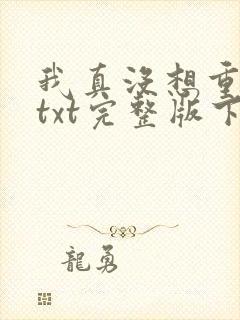 我真没想重
txt完整版下
龍勇